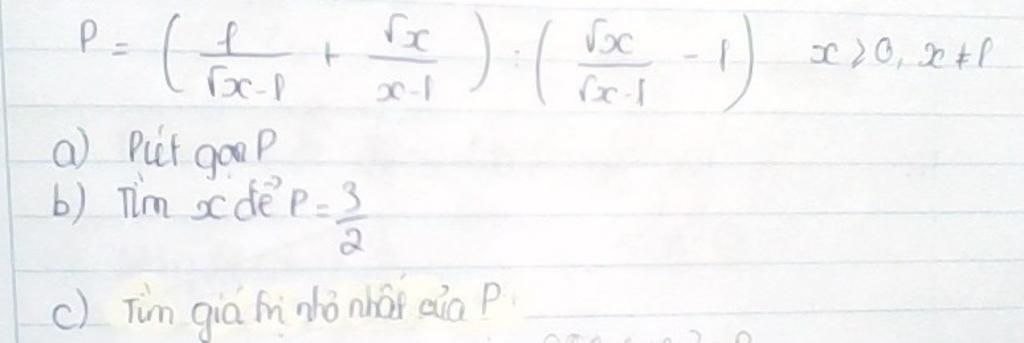 P = ( 1/(√x-1) + √x/(x-1) ) : ( √x/(√x-1) - 1 ) x ≥ 0, x ≠ 1
a) Rút gọn P
b) Tìm x để P = 3/2
c) Tìm giá trị nhỏ nhất của P